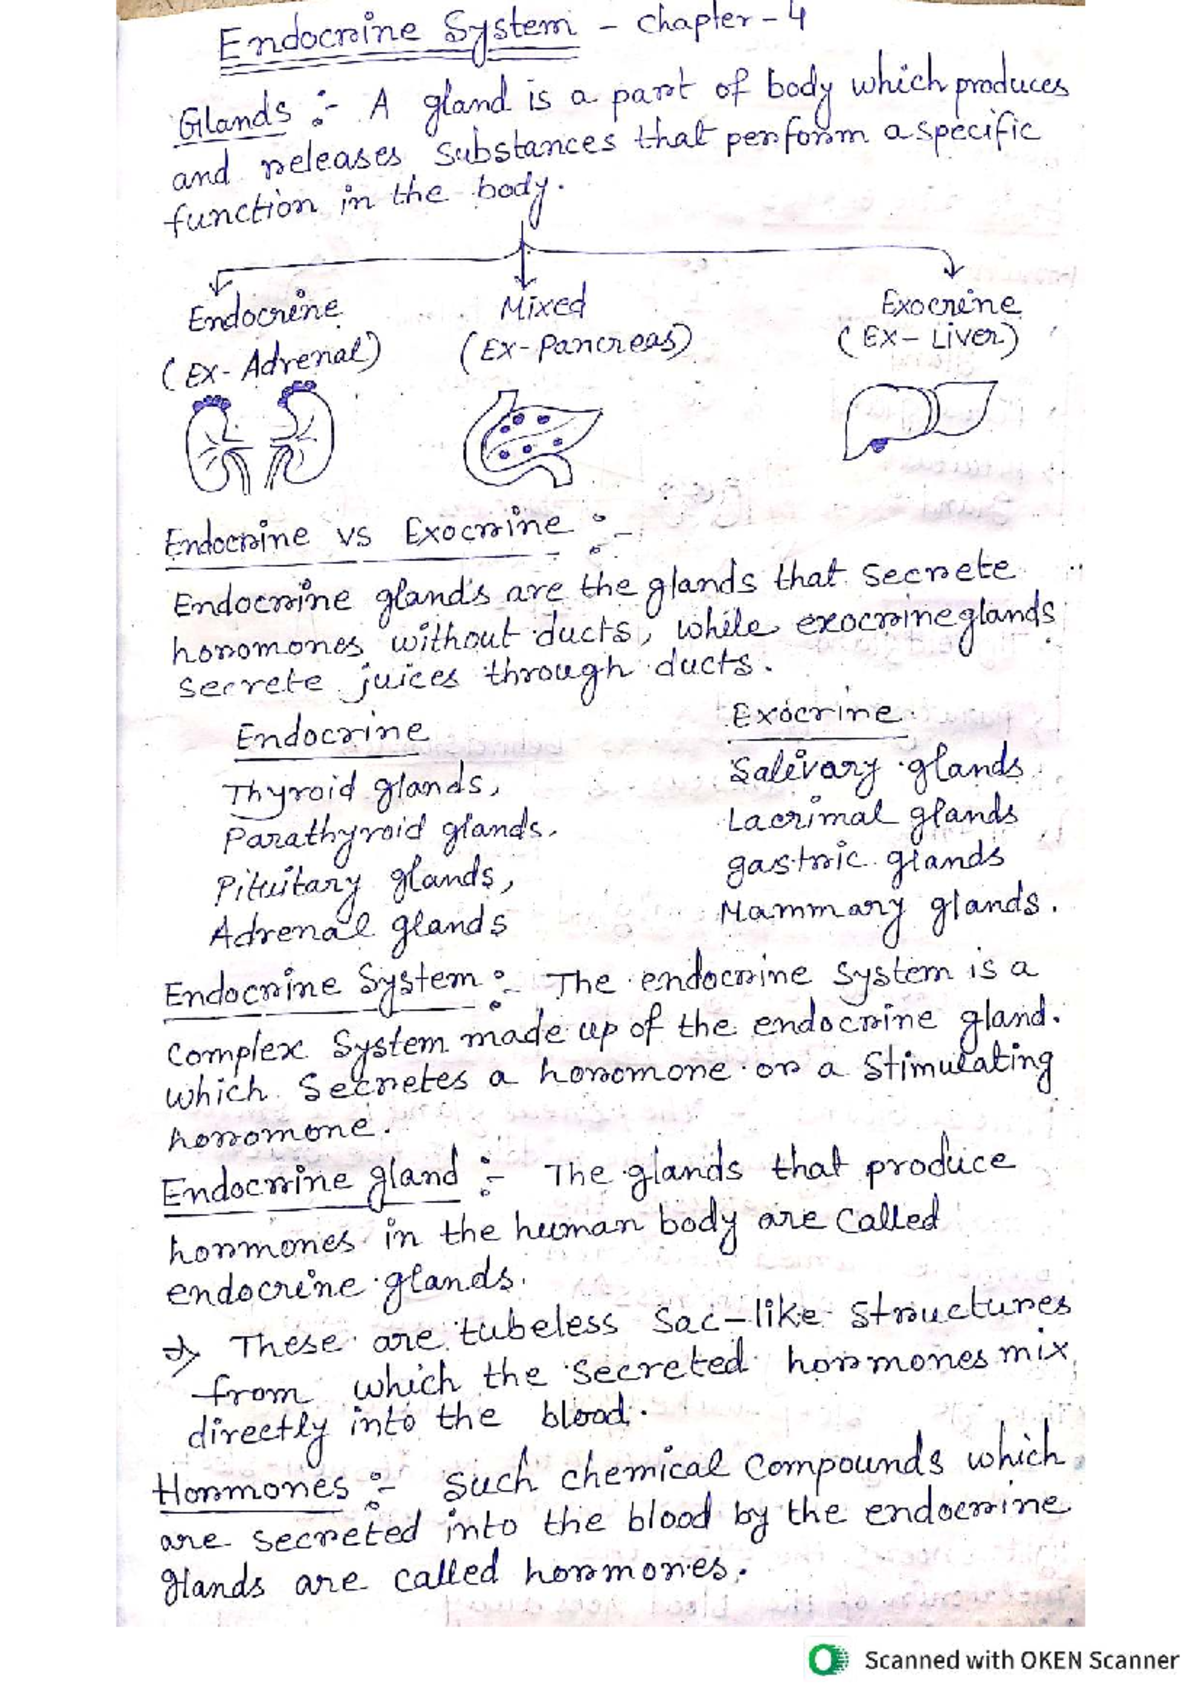 Endocrine System - Chapter - 4
Glands :- A gland is a part of body which produces
and releases substances that perform a specific
function in the body.
Endocrine Mixed Exocrine
(Ex- Adrenal) (Ex- Pancreas) (Ex- Liver)
Endocrine vs Exocrine :-
Endocrine glands are the glands that secrete
horomones without ducts, while exocrine glands
secrete juices through ducts.
Endocrine Exocrine
Thyroid glands, Salivary glands
Parathyroid glands. Lacrimal glands
Pituitary glands, gastric glands
Adrenal glands Mammary glands.
Endocrine System :- The endocrine system is a
complex system made up of the endocrine gland.
which secretes a horomone or a stimulating
horomone.
Endocrine gland :- The glands that produce
hormones in the human body are called
endocrine glands.
→ These are tubeless sac-like structures
from which the secreted hormones mix
directly into the blood.
Hormones :- Such chemical compounds which
are secreted into the blood by the endocrine
glands are called hormones.
Scanned with OKEN Scanner